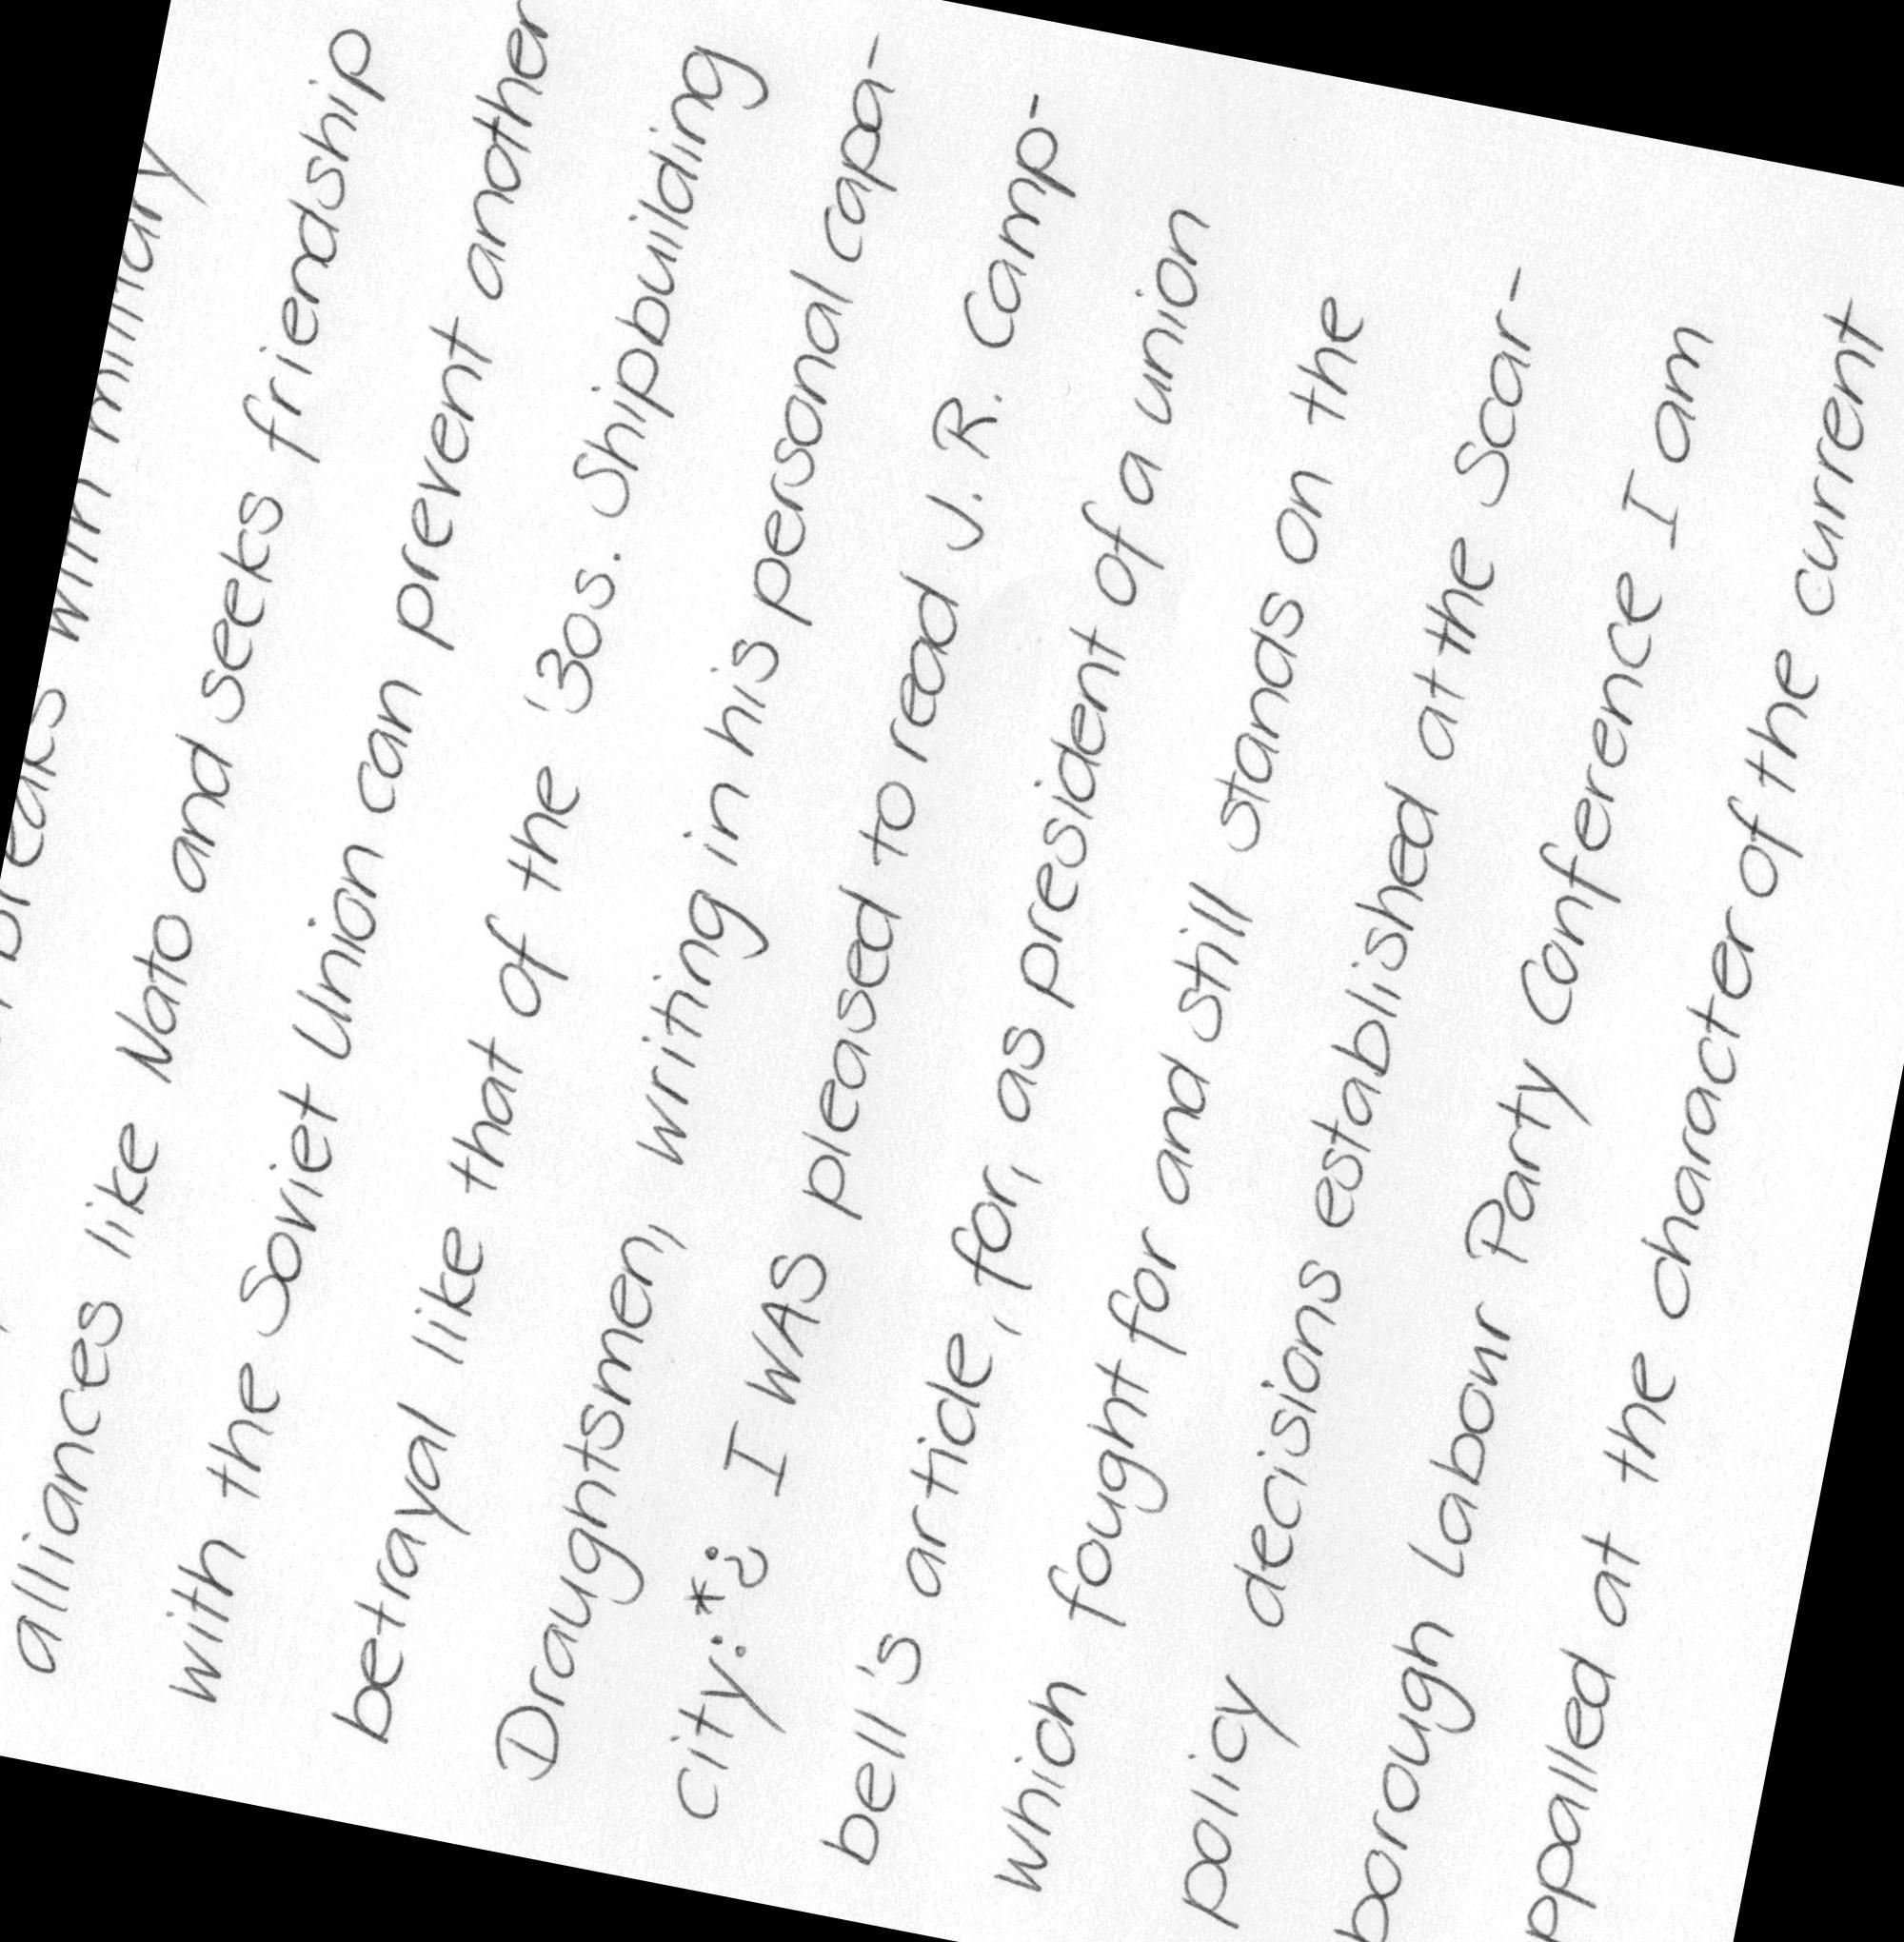 breaks with military
alliances like Nato and seeks friendship
with the Soviet Union can prevent another
betrayal like that of the '30s. Shipbuilding
Draughtsmen, writing in his personal capa-
city:*¿ I WAS pleased to read J. R. Camp-
bell's article, for, as president of a union
which fought for and still stands on the
policy decisions established at the Scar-
borough Labour Party Conference I am
ppalled at the character of the current